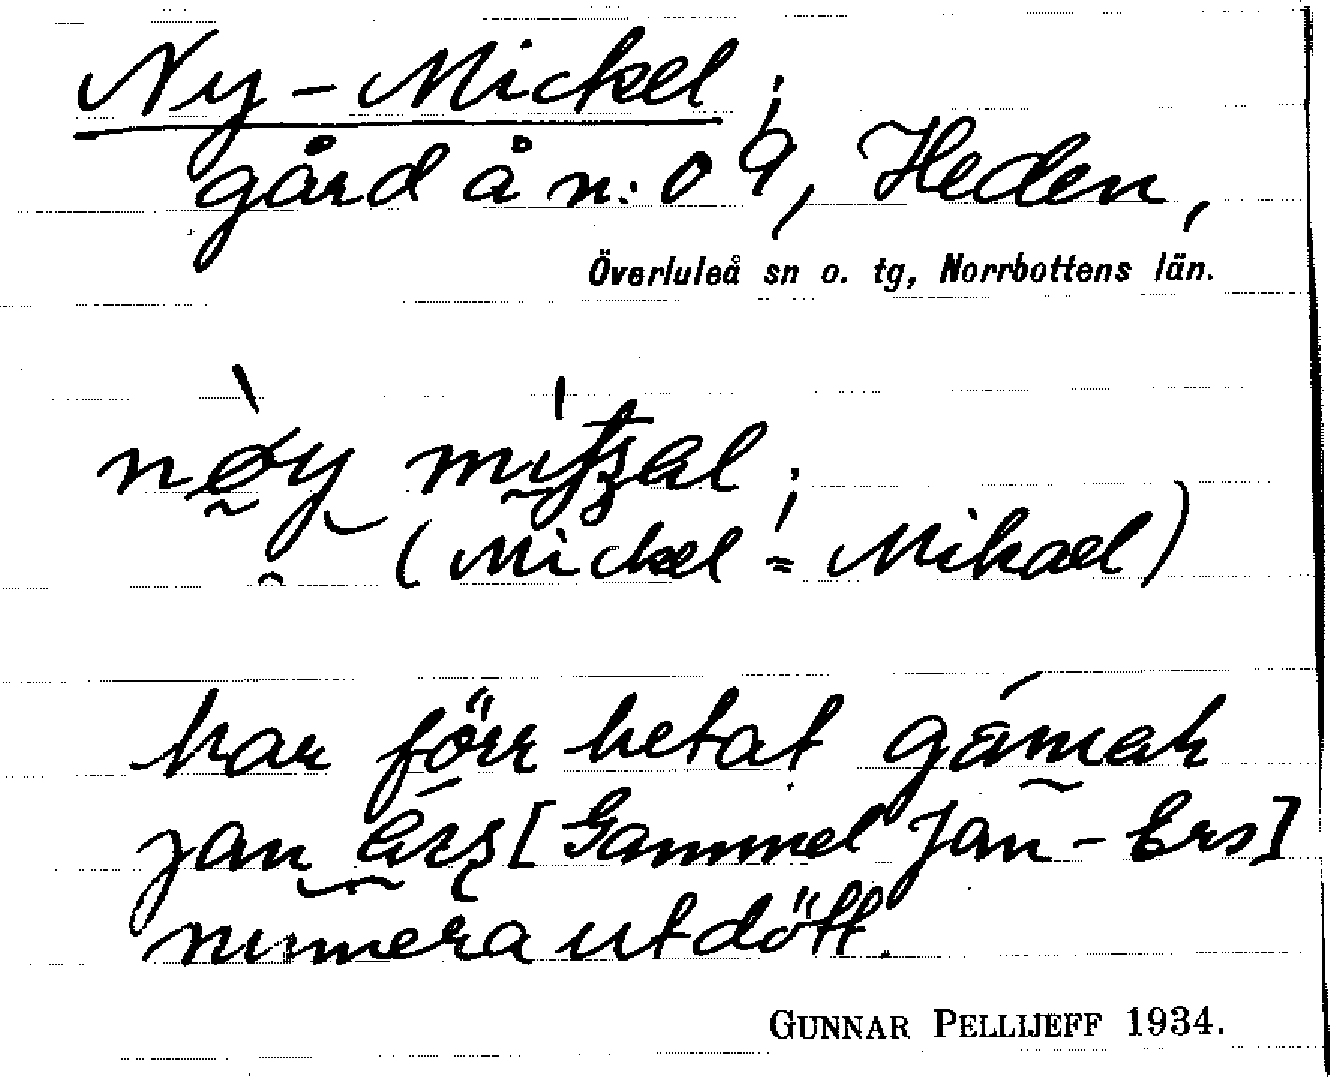 Ny-Mickel;
gård å n:o 9, Heden,
Överluleå sn o. tg, Norrbottens län.
(Mickel = Mikael)
har förr hetat
jan [Gammel Jan-Ers]
numera utdött.
GUNNAR PELLIJEFF 1934.